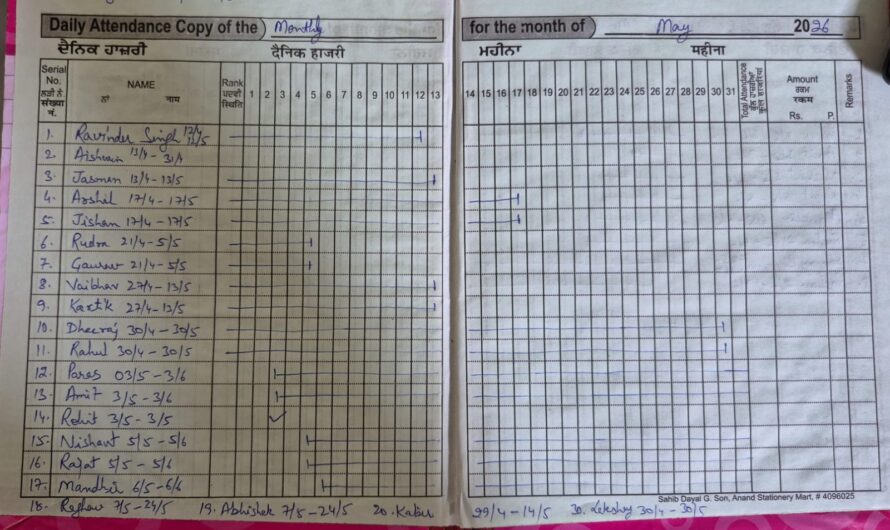 Daily Attendance Copy of the Monthly for the month of May 2026
ਦੈਨਿਕ ਹਾਜ਼ਰੀ दैनिक हाजरी ਮਹੀਨਾ महीना
Serial No. ਲੜੀ ਨੰ. संख्या नं. NAME ਨਾਂ नाम Rank ਪਦਵੀ स्थिति 1 2 3 4 5 6 7 8 9 10 11 12 13 14 15 16 17 18 19 20 21 22 23 24 25 26 27 28 29 30 31 Total Attendance ਕੁੱਲ ਹਾਜ਼ਰੀਆਂ कुल हाजरियां Amount ਰਕਮ रकम Rs. P. Remarks
1. Ravinder Singh 12/4 12/5
2. 13/4 - 31/4
3. Jasmen 13/4 - 13/5
4. Arshil 17/4 - 17/5
5. Jishan 17/4 - 17/5
6. Rudra 21/4 - 5/5
7. Gaurav 21/4 - 5/5
8. Vaibhav 27/4 - 13/5
9. Kartik 27/4 - 13/5
10. Dheeraj 30/4 - 30/5
11. Rahul 30/4 - 30/5
12. Paras 03/5 - 3/6
13. Amit 3/5 - 3/6
14. Rohit 3/5 - 3/5
15. Nishant 5/5 - 5/6
16. Rajat 5/5 - 5/6
17. 6/5 - 6/6
Sahib Dayal G. Son, Anand Stationery Mart, # 4096025
18. Raghav 7/5 - 24/5 19. Abhishek 7/5 - 24/5 20. Kabir 29/4 - 14/5 30/4 - 30/5